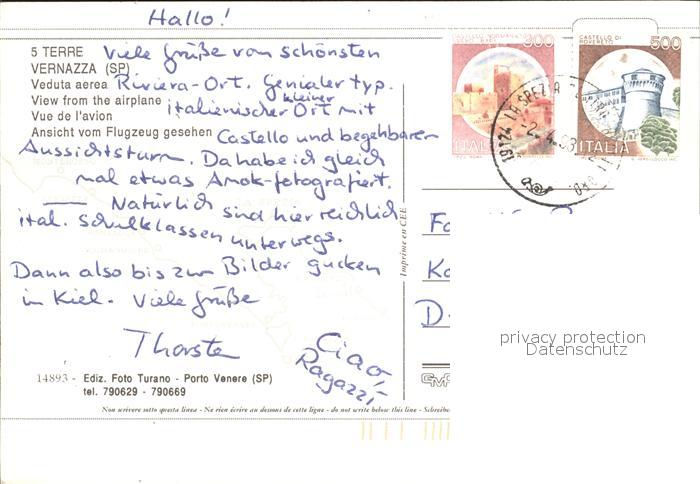 Hallo!
5 TERRE
VERNAZZA (SP)
Veduta aerea
View from the airplane
Vue de l'avion
Ansicht vom Flugzeug gesehen
Viele Grüße vom schönsten
Riviera-Ort. Genialer typ.
kleiner
italienischer Ort mit
Castello und begehbaren
Aussichtsturm. Da habe ich gleich
mal etwas Amok-fotografiert.
Natürlich sind hier reichlich
ital. Schulklassen unterwegs.
Dann also bis zum Bilder gucken
in Kiel. Viele Grüße
Thorsten
Ciao,
Ragazzi
14893 - Ediz. Foto Turano - Porto Venere (SP)
tel. 790629 - 790669
Non scrivere sotto questa linea - Ne rien écrire au dessous de cette ligne - do not write below this line - Schreiben
Imprimé en CEE
300
ITALIA
CASTELLO DI
ROVERETO
500
ITALIA
19124 LA SPEZIA
privacy protection
Datenschutz